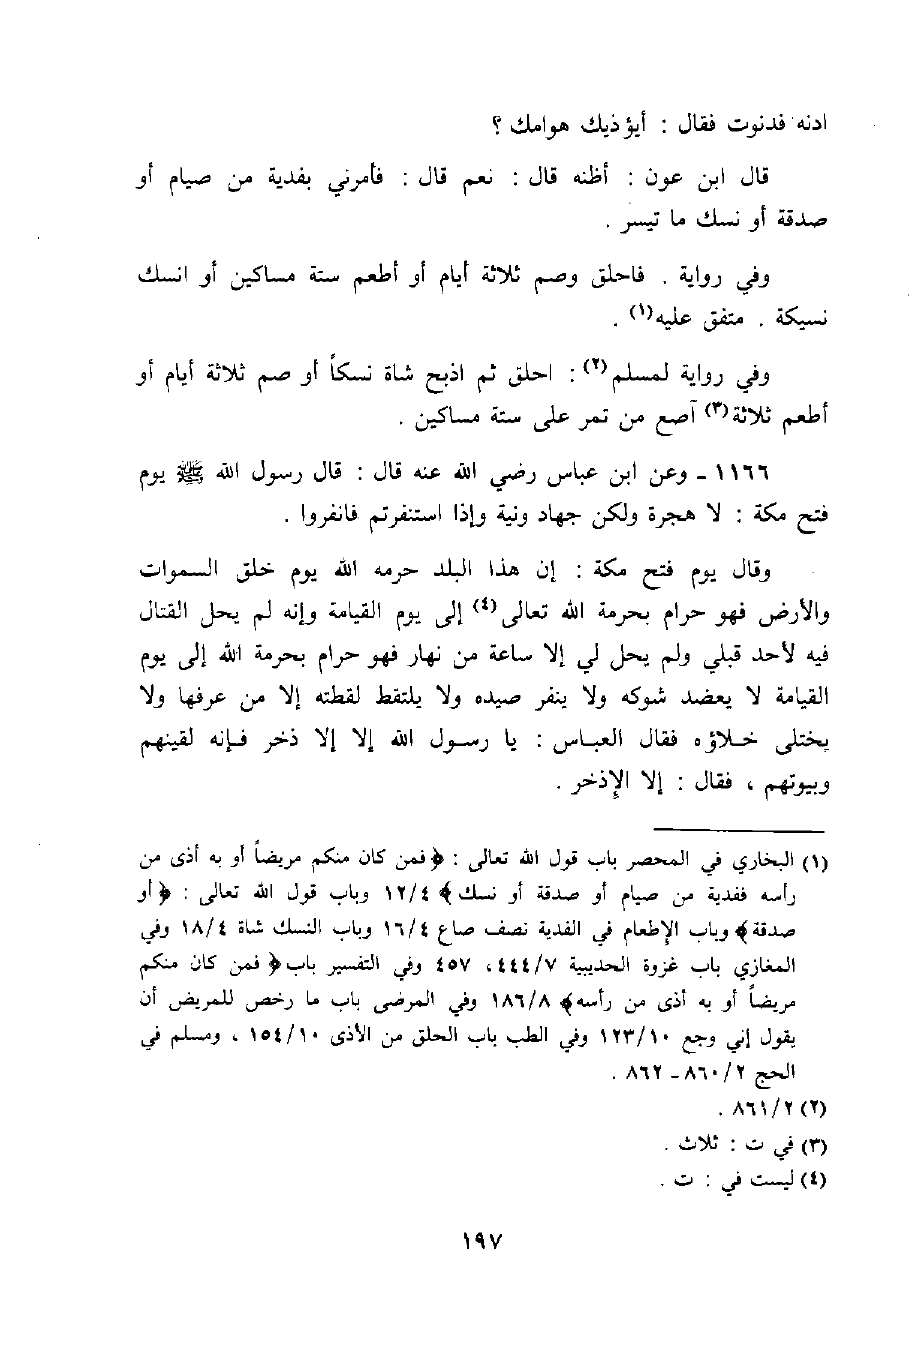 ادنه فدنوت فقال : أيؤذيك هوامك ؟
قال ابن عون : أظنه قال : نعم قال : فأمرني بفدية من صيام أو
صدقة أو نسك ما تيسر .
وفي رواية . فاحلق وصم ثلاثة أيام أو أطعم ستة مساكين أو انسك
نسيكة . متفق عليه(١) .
وفي رواية لمسلم(٢) : احلق ثم اذبح شاة نسكاً أو صم ثلاثة أيام أو
أطعم ثلاثة(٣) آصع من تمر على ستة مساكين .
١١٦٦ - وعن ابن عباس رضي الله عنه قال : قال رسول الله ﷺ يوم
فتح مكة : لا هجرة ولكن جهاد ونية وإذا استنفرتم فانفروا .
وقال يوم فتح مكة : إن هذا البلد حرمه الله يوم خلق السموات
والأرض فهو حرام بحرمة الله تعالى(٤) إلى يوم القيامة وإنه لم يحل القتال
فيه لأحد قبلي ولم يحل لي إلا ساعة من نهار فهو حرام بحرمة الله إلى يوم
القيامة لا يعضد شوكه ولا ينفر صيده ولا يلتقط لقطته إلا من عرفها ولا
يختلى خلاؤه فقال العباس : يا رسول الله إلا إلا ذخر فإنه لقينهم
وبيوتهم ، فقال : إلا الإذخر .
(١) البخاري في المحصر باب قول الله تعالى : ﴿فمن كان منكم مريضاً أو به أذى من
رأسه ففدية من صيام أو صدقة أو نسك﴾ ١٢/٤ وباب قول الله تعالى : ﴿أو
صدقة﴾ وباب الإطعام في الفدية نصف صاع ١٦/٤ وباب النسك شاة ١٨/٤ وفي
المغازي باب غزوة الحديبية ٤٤٤/٧، ٤٥٧ وفي التفسير باب ﴿فمن كان منكم
مريضاً أو به أذى من رأسه﴾ ١٨٦/٨ وفي المرضى باب ما رخص للمريض أن
يقول إني وجع ١٢٣/١٠ وفي الطب باب الحلق من الأذى ١٥٤/١٠ ، ومسلم في
الحج ٨٦٠/٢ - ٨٦٢ .
(٢) ٨٦١/٢ .
(٣) في ت : ثلاث .
(٤) ليست في : ت .
١٩٧